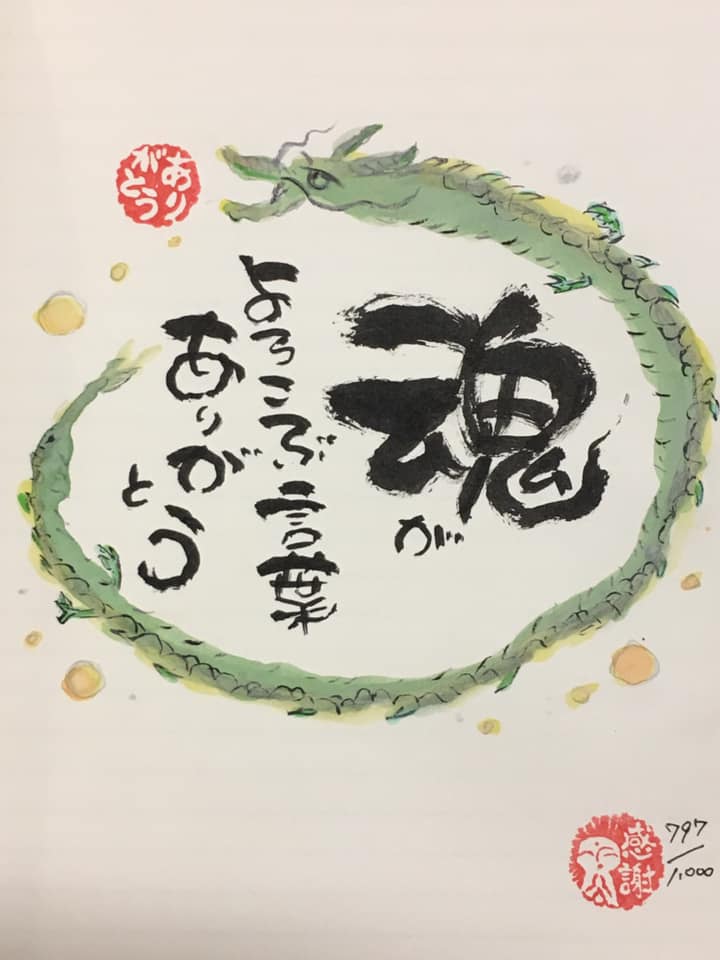 魂が
よろこぶ言葉
ありがとう
ありがとう
感謝
797/1,000